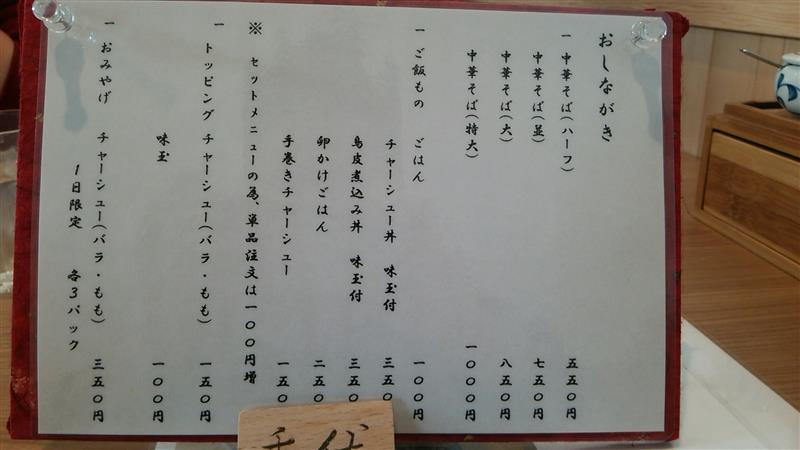 おしながき
一 中華そば(ハーフ) 五五〇円
中華そば(並) 七五〇円
中華そば(大) 八五〇円
中華そば(特大) 一〇〇〇円
一 ご飯もの ごはん 一〇〇円
チャーシュー丼 味玉付 三五〇
鳥皮煮込み丼 味玉付 三五〇
卵かけごはん 二五〇
手巻きチャーシュー 一五〇
※ セットメニューの為、単品注文は一〇〇円増
一 トッピング チャーシュー(バラ・もも) 一五〇円
味玉 一〇〇円
一 おみやげ チャーシュー(バラ・もも) 三五〇円
1日限定 各3パック